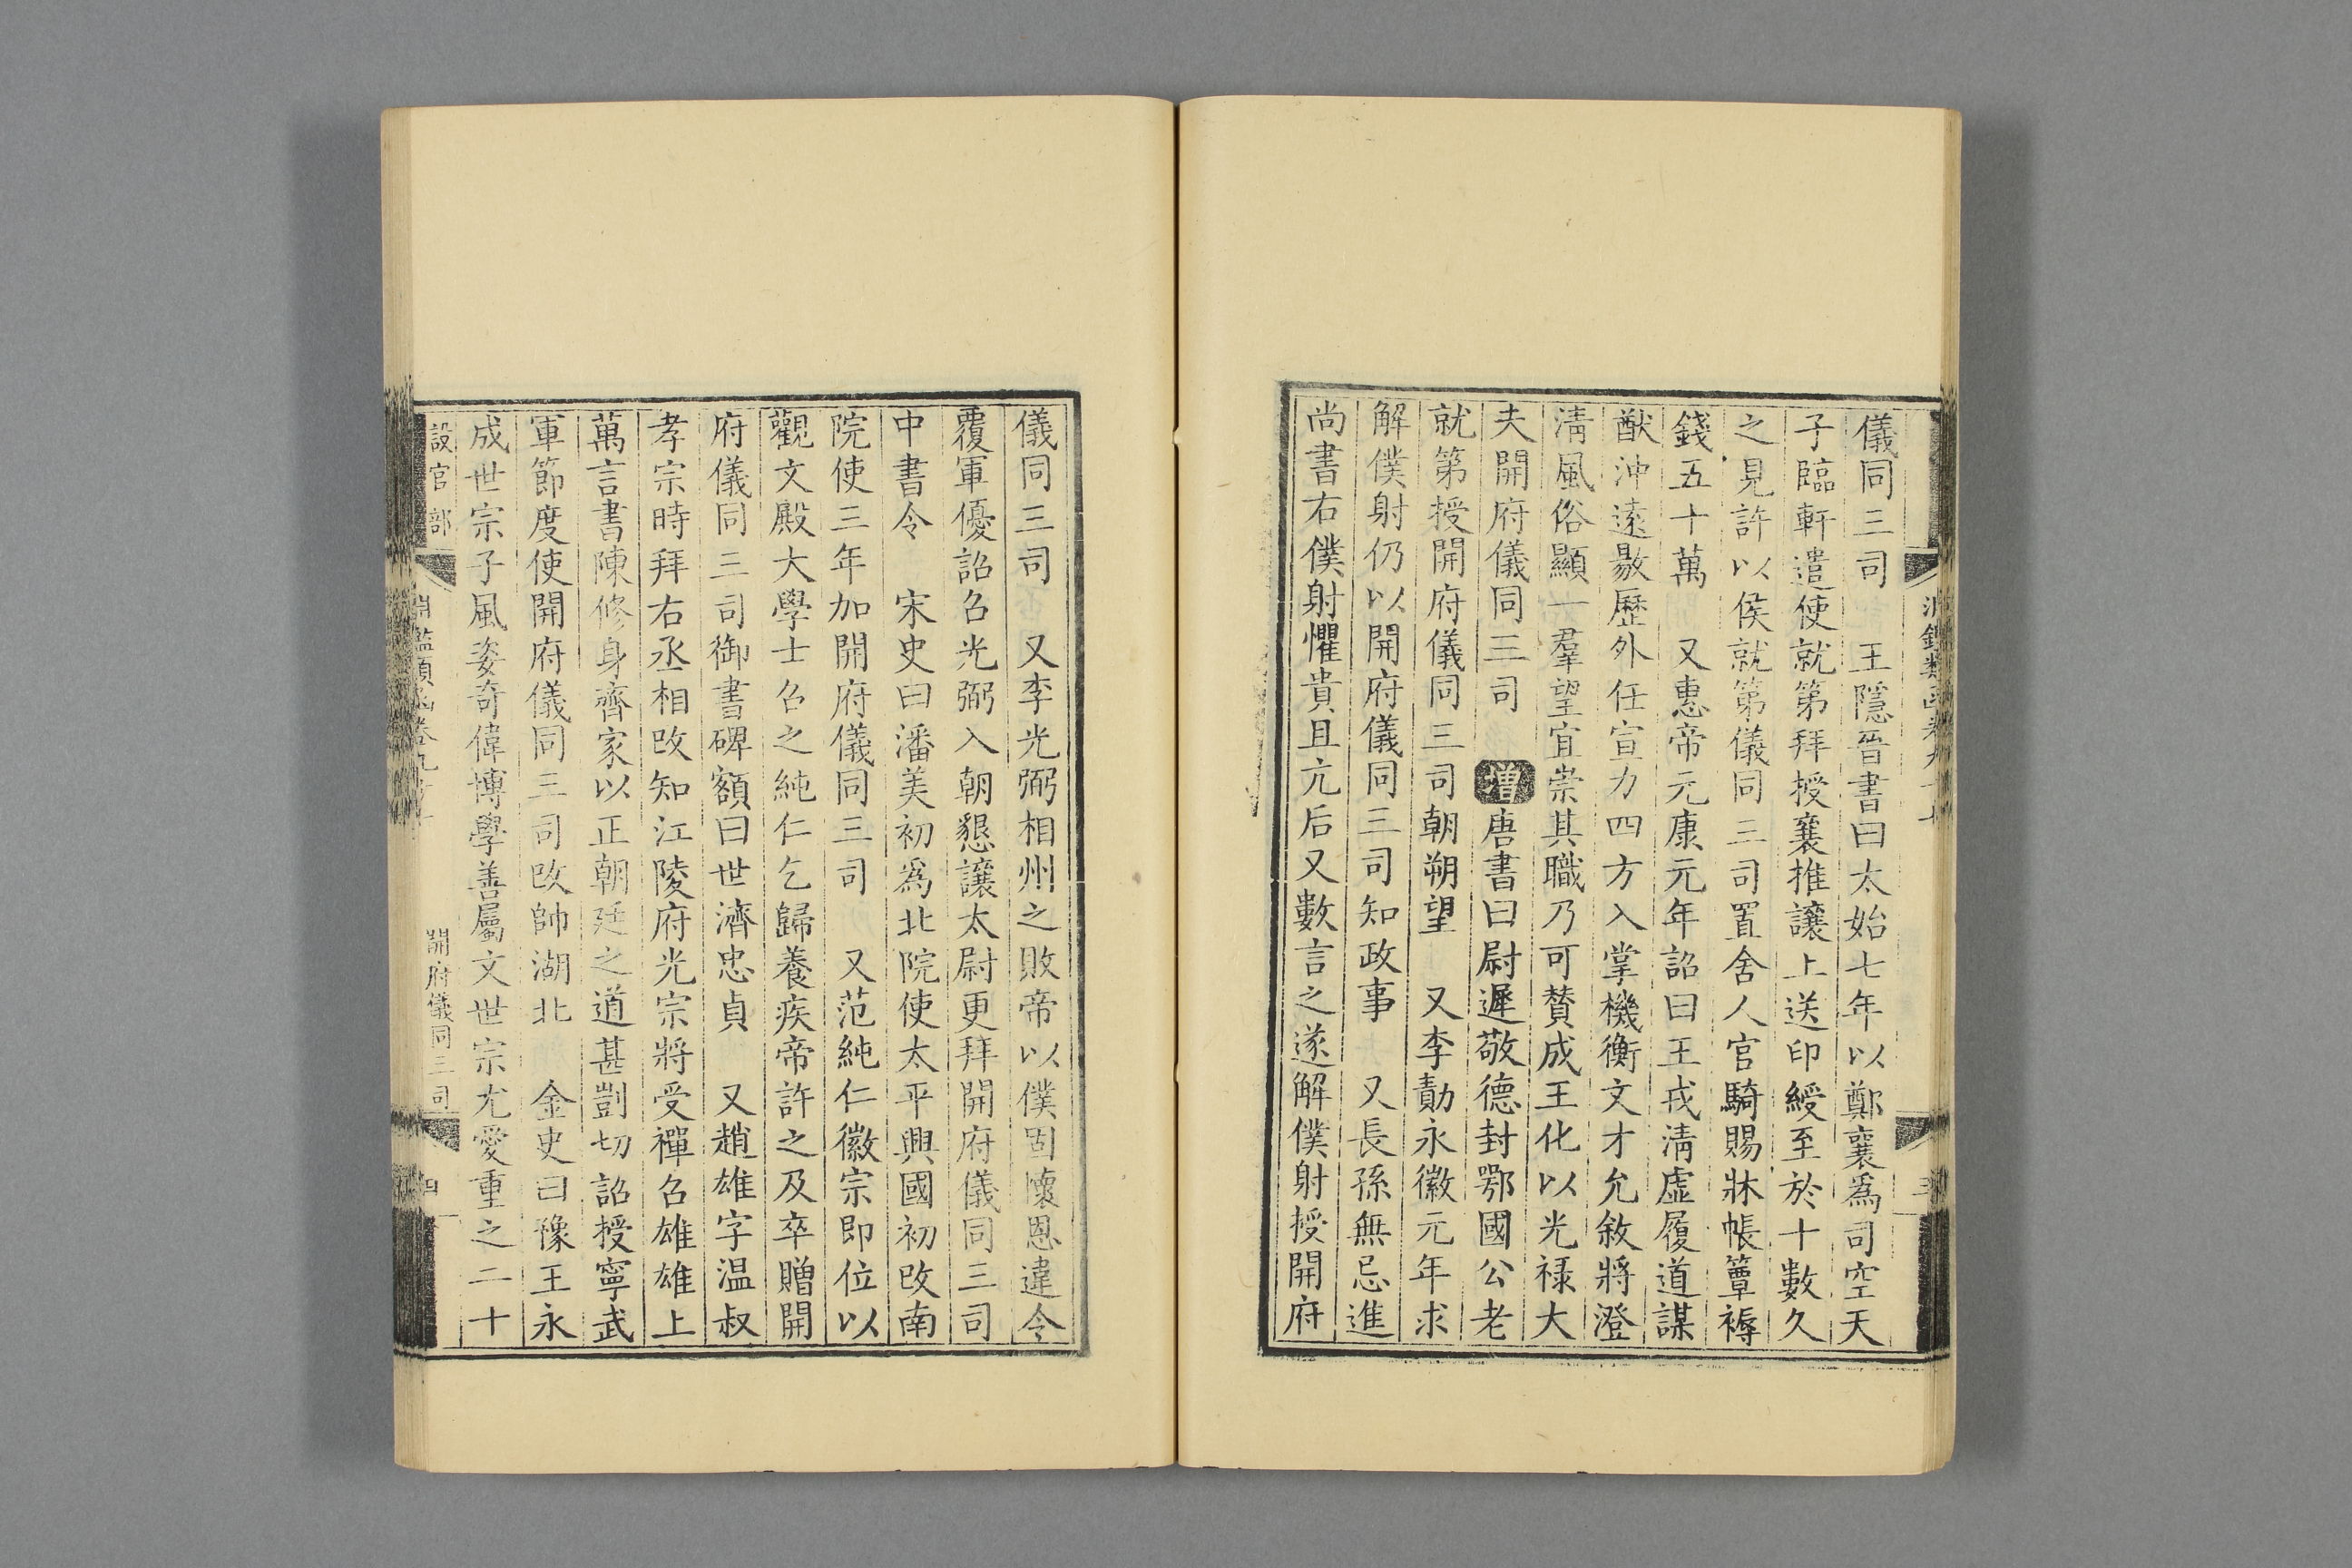 儀同三司　王隱晉書曰太始七年以鄭襄爲司空天
子臨軒遣使就第拜授襄推讓上送印綬至於十數久
之見許以侯就第儀同三司置舍人官騎賜牀帳簟褥
錢五十萬　又惠帝元康元年詔曰王戎淸虛履道謀
猷沖遠敭歷外任宣力四方入掌機衡文才允敘將澄
淸風俗顯一羣望宜崇其職乃可贊成王化以光祿大
夫開府儀同三司　增唐書曰尉遲敬德封鄂國公老
就第授開府儀同三司朝朔望　又李勣永徽元年求
解僕射仍以開府儀同三司知政事　又長孫無忌進
尚書右僕射懼貴且亢后又數言之遂解僕射授開府
儀同三司　又李光弼相州之敗帝以僕固懷恩違令
覆軍優詔召光弼入朝懇讓太尉更拜開府儀同三司
中書令　宋史曰潘美初爲北院使太平興國初改南
院使三年加開府儀同三司　又范純仁徽宗即位以
觀文殿大學士召之純仁乞歸養疾帝許之及卒贈開
府儀同三司御書碑額曰世濟忠貞　又趙雄字温叔
孝宗時拜右丞相改知江陵府光宗將受禪召雄雄上
萬言書陳修身齊家以正朝廷之道甚剴切詔授寧武
軍節度使開府儀同三司改帥湖北　金史曰豫王永
成世宗子風姿奇偉博學善屬文世宗尤愛重之二十
設官部
開府儀同三司
四